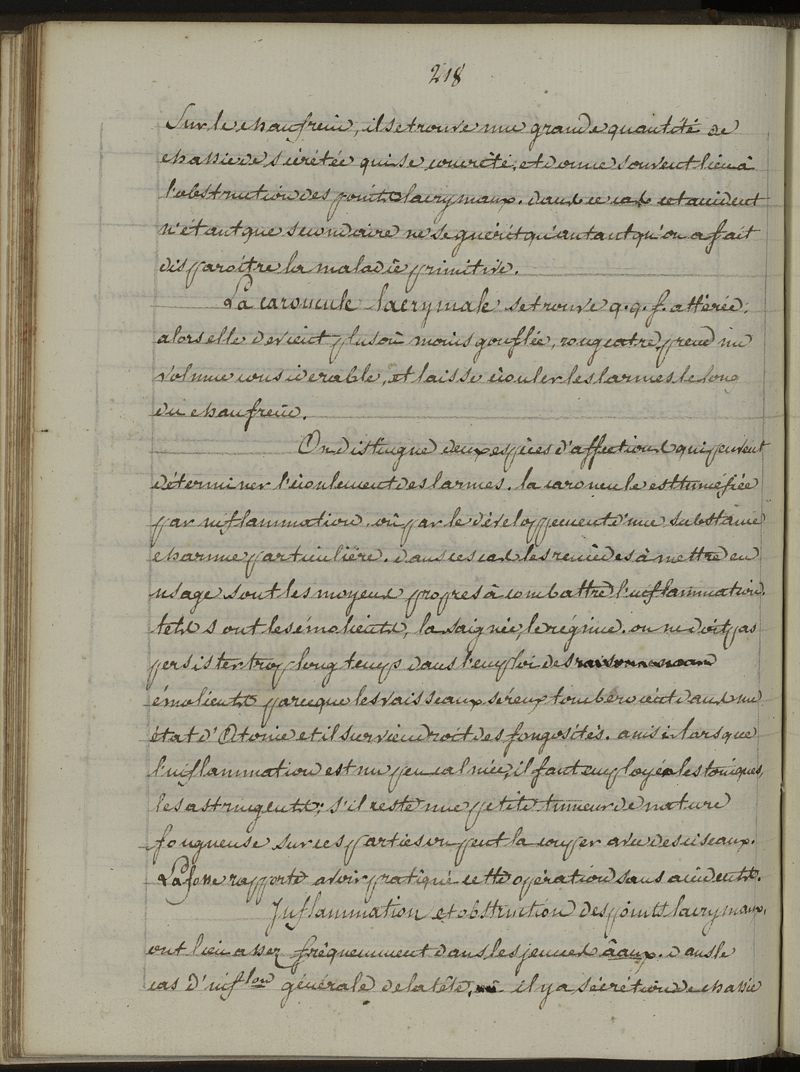 218
Sur le chanfrein, il se trouve une grande quantité de
chassie de sécrétée qui se concrète, et donne souvent lieu à
l'obstruction des points lacrymaux. dans ce cas cet accident
n'étant que secondaire ne se guérit qu'autant qu'on a fait
disparoitre la maladie primitive.
La caroncule lacrymale se trouve q.q.f. altérée;
alors elle devient plus ou moins gonflée, rougeatre, prend un
volume considerable, et laisse écouler les larmes le long
du chanfrein.
On distingue deux espèces d'affections qui peuvent
déterminer l'écoulement des larmes. la caroncule est tuméfiée
par inflammation, ou par le développement d'une substance
charnue particulière. dans ces cas les remèdes à mettre en
usage sont les moyens propres à combattre l'inflammation.
tels sont les émolients, la saignée, le régime. on ne doit pas
persister trop long temps dans l'emploi des
émolients parceque les vaisseaux séreux tomberoient dans un
état d'Atonie et il surviendroit des fongosités. ainsi lorsque
l'inflammation est un peu calmée, il faut employer les toniques,
les astringents; s'il reste une petite tumeur de nature
fongueuse sur ces parties on peut la couper avec des ciseaux.
Lafosse rapporte avoir pratiqué cette opération sans accidents.
Inflammation et obstruction des points lacrymaux.
ont lieu assez fréquemment dans les jeunes âaux. dans le
cas d'inflon générale de la tête, il y a sécrétion de chassie